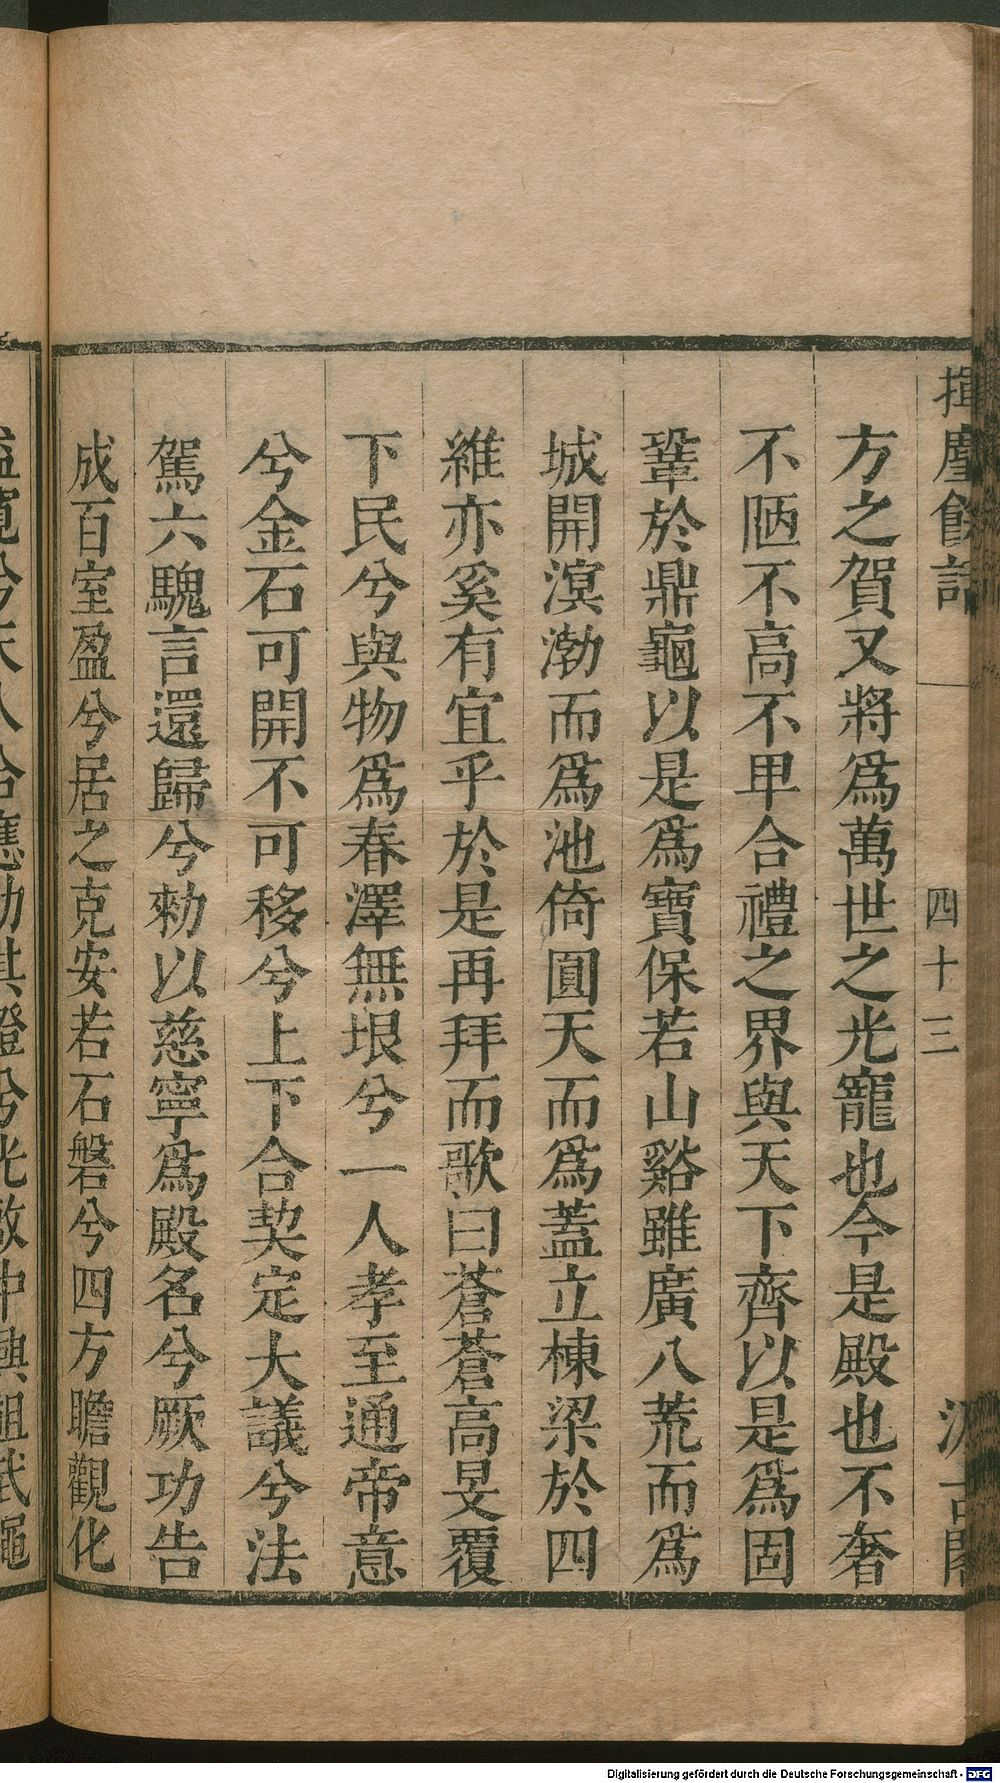 揮麈餘話
四十三
汲古閣
方之賀又將爲萬世之光寵也今是殿也不奢
不陋不高不甲合禮之界與天下齊以是爲固
鞏於鼎龜以是爲寶保若山谿雖廣八荒而爲
城開溟渤而爲池倚圓天而爲蓋立棟梁於四
維亦奚有宜乎於是再拜而歌曰蒼蒼高旻覆
下民兮與物爲春澤無垠兮一人孝至通帝意
兮金石可開不可移兮上下合契定大議兮法
駕六騩言還歸兮勑以慈寧爲殿名兮厥功告
成百室盈兮居之克安若石磐兮四方瞻觀化
兮天人合應勅其證兮光啟中興祖武繩
Digitalisierung gefördert durch die Deutsche Forschungsgemeinschaft - DFG